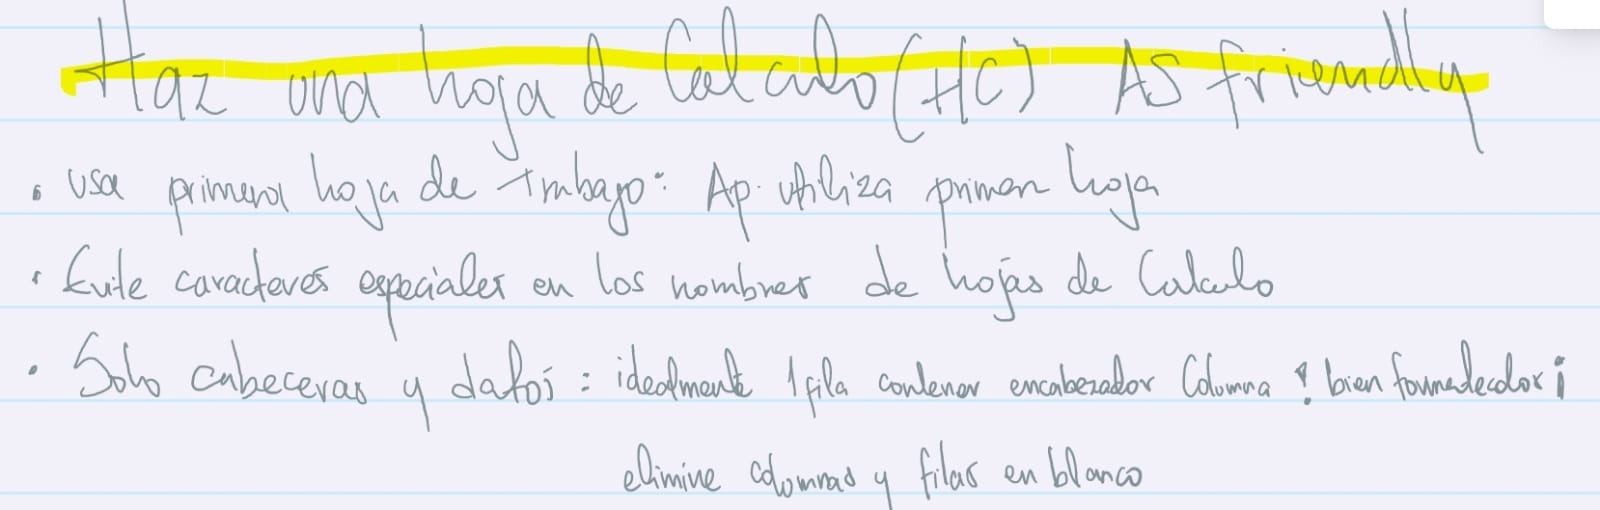 Haz una hoja de Calculo (HC) AS friendly
• Usa primera hoja de trabajo: Ap. utiliza primera hoja
• Evite caracteres especiales en los nombres de hojas de Calculo
• Solo cabeceras y datos: idealmente 1 fila contener encabezados Columna ! bien formateados ¡
elimine columnas y filas en blanco